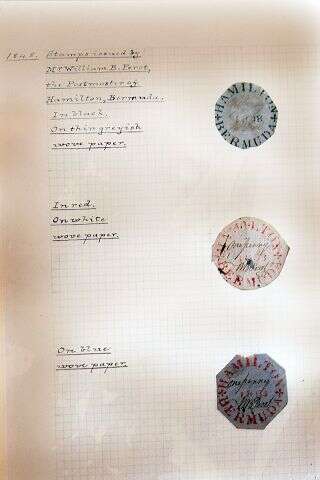 1848. Stamps issued by
Mr William B. Perot,
the Postmaster of
Hamilton, Bermuda.
In black.
On thin greyish
wove paper.
HAMILTON
BERMUDA
In red.
On white
wove paper.
HAMILTON
one penny
BERMUDA
On blue
wove paper.
HAMILTON
one penny
BERMUDA